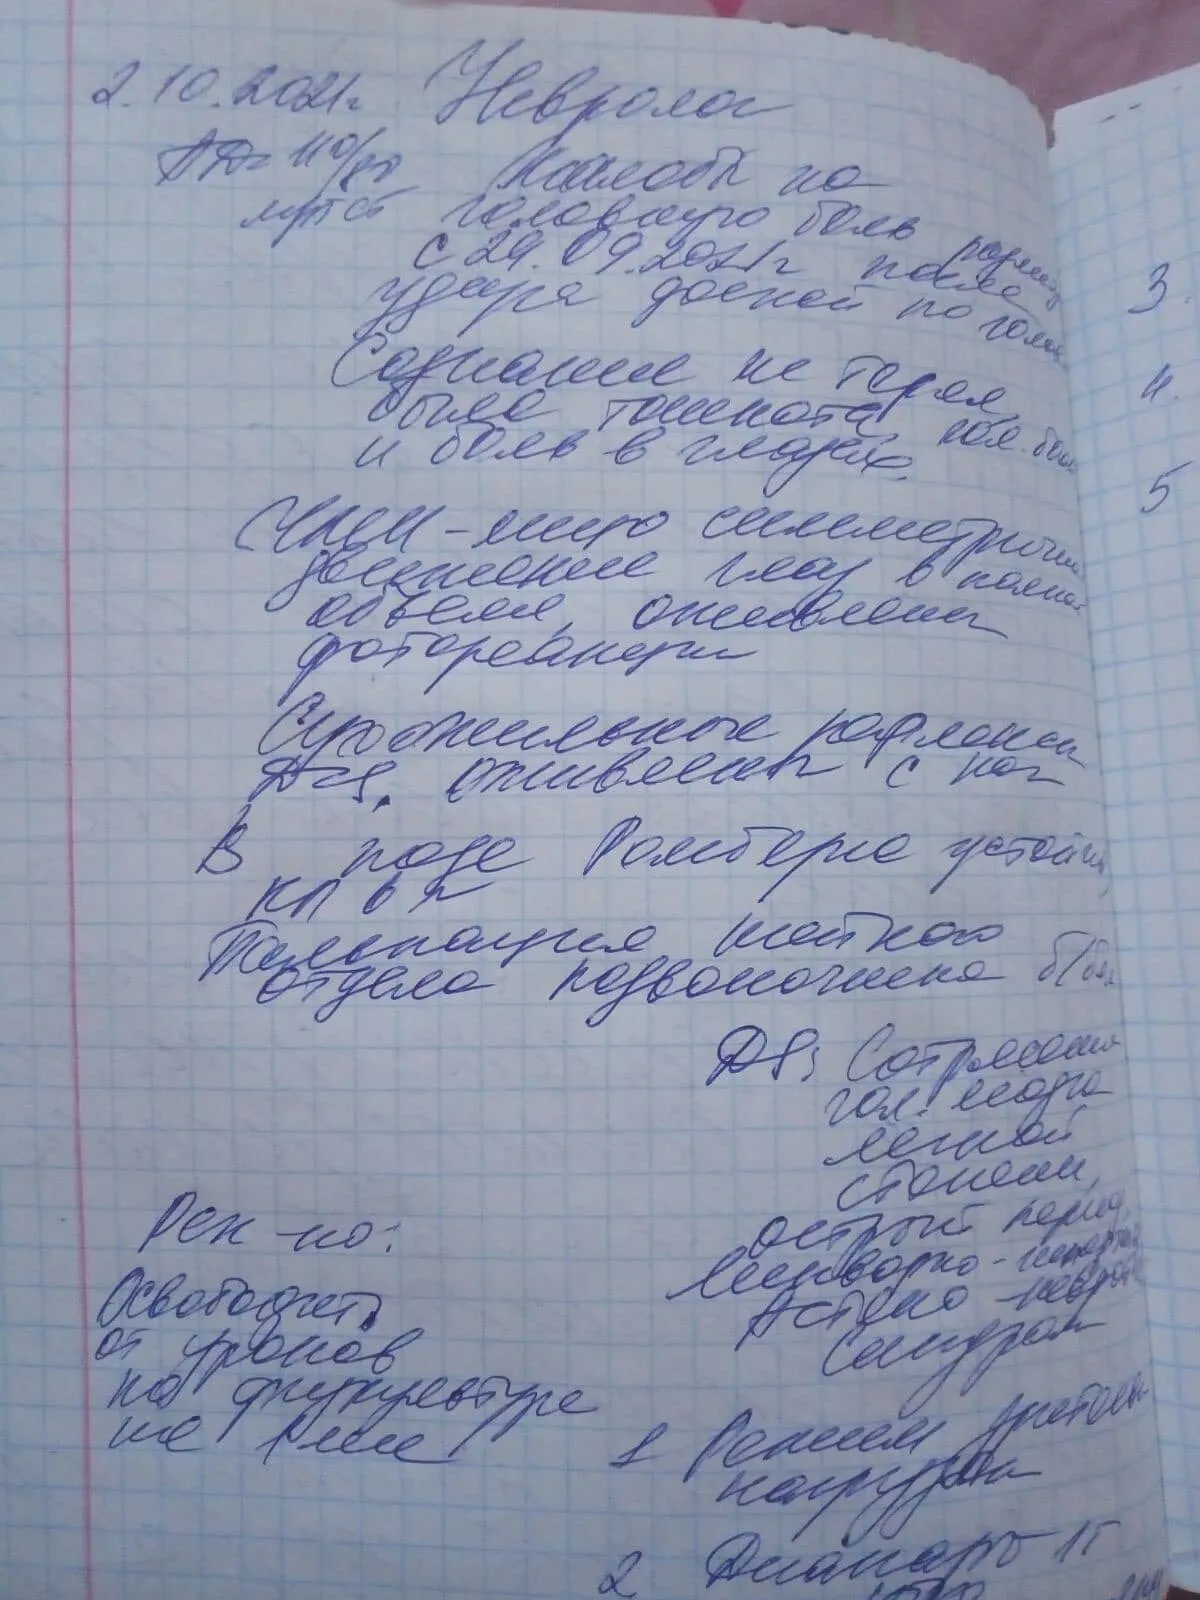 2.10.2021г Невролог
АД= 110/80
мм рт ст
Жалобы на
головную боль
с 29.09.2021г после
удара доской по голов
Сознание не терял,
была тошнота, гол. боль
и боль в глазах.
ЧМН - лицо симметрично
движение глаз в полном
объеме, оживлены
фотореакции
Сухожильные рефлексы
D=S, оживлены с ног
В позе Ромберга устойчив,
Пальпация шейного
отдела позвоночника б/бол
DS: Сотрясение
гол. мозга
легкой
степени,
острый период,
Ликворно-гипертен
Астено-невроти
синдром
Рек-но:
Освободить
от уроков
по физкультуре
на 1 мес
1 Режим
нагрузок
2 Диакарб 1т
3.
4.
5